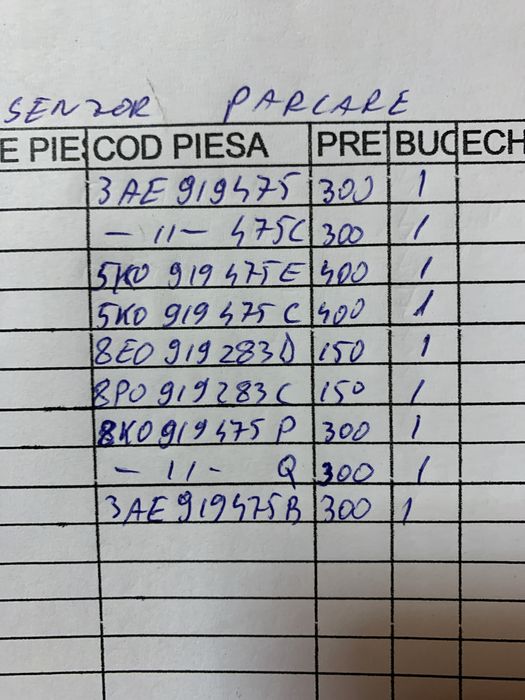 SENZOR PARCARE
E PIE COD PIESA PRE BUC ECH
3AE 919475 300 1
- 11 - 475C 300 1
5K0 919 475 E 400 1
5K0 919 475 C 400 1
8E0 919 283 D 150 1
8P0 919283 C 150 1
8K0919475 P 300 1
- 11 - Q 300 1
3AE 919475B 300 1